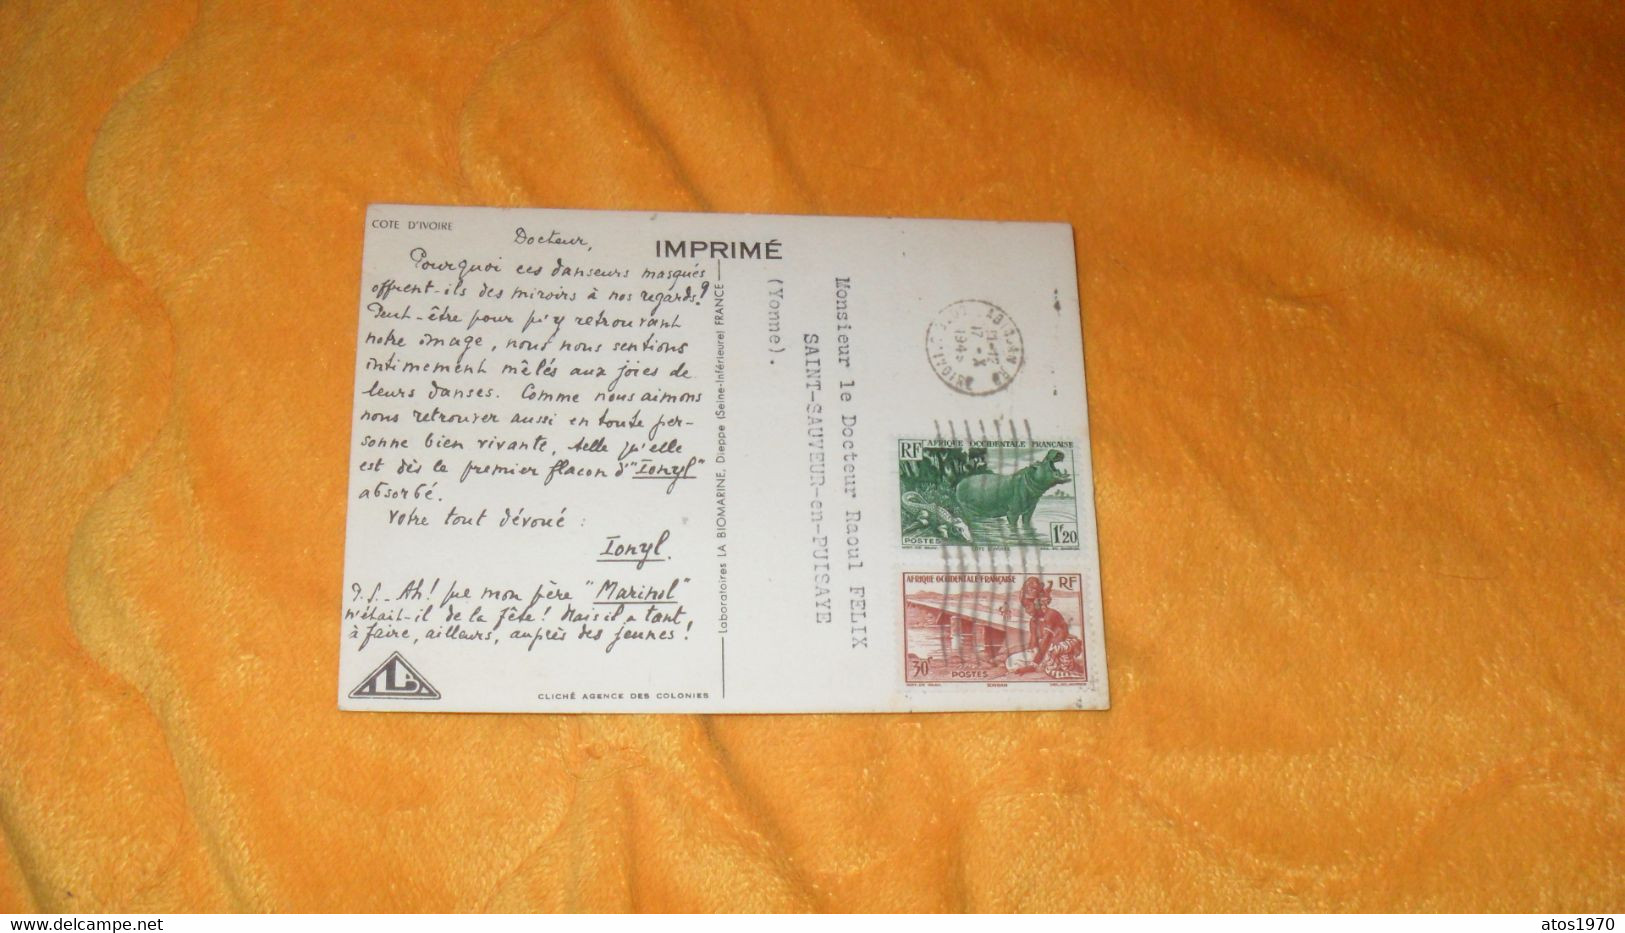 COTE D'IVOIRE
Docteur,
IMPRIMÉ
Pourquoi ces danseurs masqués
offrent-ils des miroirs à nos regards?
Peut-être pour qu'y retrouvant
notre image, nous nous sentions
intimement mêlés aux joies de
leurs danses. Comme nous aimons
nous retrouver aussi en toute per-
sonne bien vivante, telle qu'elle
est dès le premier flacon d'"Ionyl"
absorbé.
Votre tout dévoué :
Ionyl.
P.S. - Ah! que mon père "Marinol"
n'était-il de la fête! Mais il a tant,
à faire, ailleurs, auprès des jeunes!
CLICHÉ AGENCE DES COLONIES
Laboratoires LA BIOMARINE, Dieppe (Seine-Inférieure) FRANCE
Monsieur le Docteur Raoul FELIX
SAINT-SAUVEUR-en-PUISAYE
(Yonne).
ABIDJAN
17 - X
RF AFRIQUE OCCIDENTALE FRANÇAISE
POSTES
1F20
AFRIQUE OCCIDENTALE FRANÇAISE RF
30c
POSTES
www.delcampe.net
atos1970